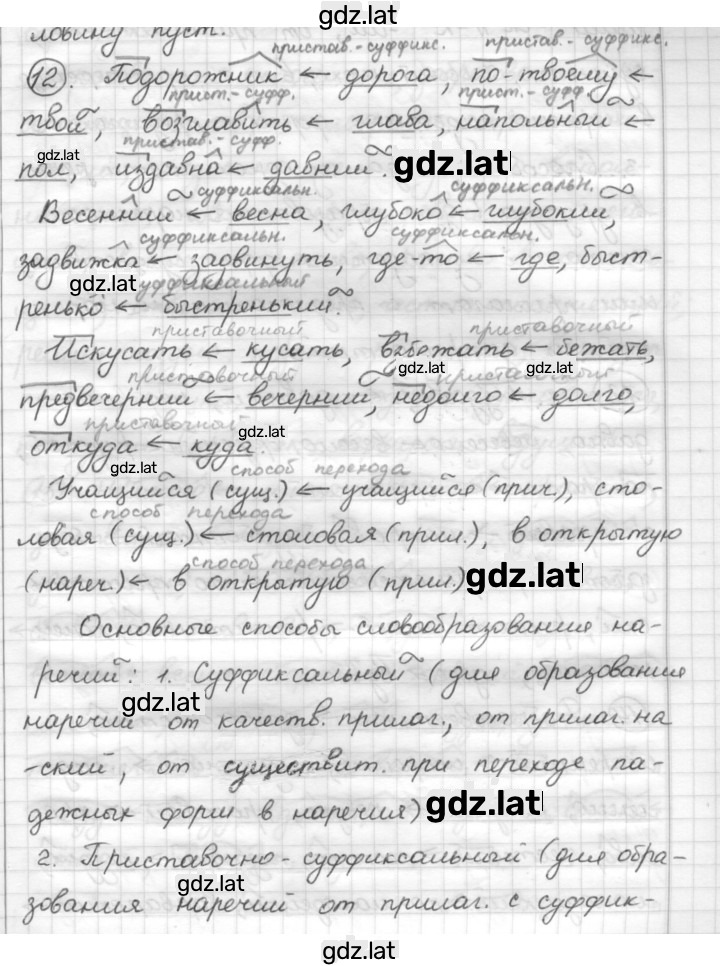 gdz.lat
ловину пуст.
пристав.-суффикс. пристав.-суффикс.
12. Подорожник ← дорога, по-твоему ←
прист.-суфф. прист.-суфф.
твой, возглавить ← глава, напольный ←
gdz.lat пристав.-суфф.
пол, издавна ← давний. gdz.lat
суффиксальн. суффиксальн.
Весенний ← весна, глубоко ← глубокий,
суффиксальн. суффиксальн.
задвижка ← задвинуть, где-то ← где, быст-
gdz.lat суффиксальный
ренько ← быстренький.
приставочный приставочный
Искусать ← кусать, взбежать ← бежать,
gdz.lat gdz.lat
приставочный приставочный
предвечерний ← вечерний, недолго ← долго,
приставочный gdz.lat
откуда ← куда.
gdz.lat способ перехода
Учащийся (сущ.) ← учащийся (прич.), сто-
способ перехода
ловая (сущ.) ← столовая (прил.), в открытую
способ перехода
(нареч.) ← в открытую (прил.) gdz.lat
Основные способы словообразования на-
речий: 1. Суффиксальный (для образования
gdz.lat
наречий от качеств. прилаг., от прилаг. на
-ский, от существит. при переходе па-
дежных форм в наречия) gdz.lat
2. Приставочно-суффиксальный (для обра-
gdz.lat
зования наречий от прилаг. с суффик-
gdz.lat